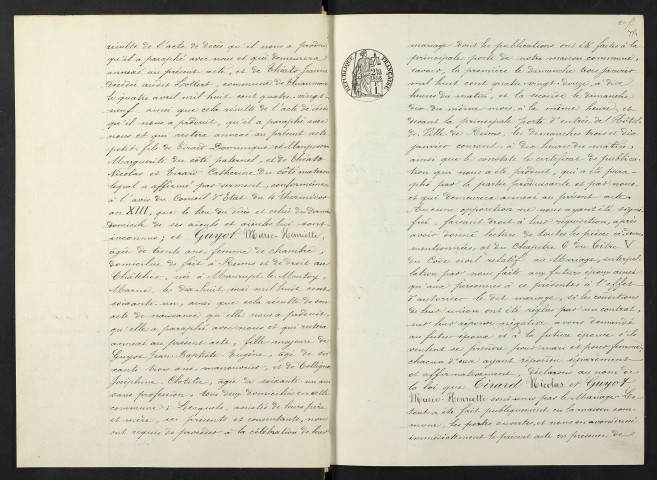 résulte de l'acte de décès qu'il nous a produit
qu'il a paraphé avec nous et qui demeurera
annexé au présent acte, et de Thiéato Jeanne
décédée audit Lottert, commune de Thaumont
le quatre avril mil huit cent quatre-vingt-
neuf, ainsi que cela résulte de l'acte de décès
qu'il nous a produit, qu'il a paraphé avec
nous et qui restera annexé au présent acte
petit-fils de Girard Dominique et
Marguerite du côté paternel, et de Thiéato
Nicolas et Evrard Catherine du côté maternel
lequel a affirmé par serment, conformément
à l'avis du Conseil d'Etat du 4 thermidor
an XIII, que le lieu du décès et celui du dernier
domicile de ses aïeuls et aïeules lui sont
inconnus; et Guyot Marie-Henriette,
âgée de trente ans, femme de chambre,
domiciliée de fait à Reims et de droit au
Châtelier, née à Maurupt-le-Montoy,
Marne, le dix-huit mai mil huit cent
soixante-un, ainsi que cela résulte de son
acte de naissance qu'elle nous a produit,
qu'elle a paraphé avec nous et qui restera
annexé au présent acte, fille majeure de
Guyot Jean-Baptiste Eugène, âgé de soi-
xante-trois ans, manouvrier, et de Collignon
Joséphine Clotilde, âgée de soixante-un ans
sans profession, tous deux domiciliés en cette
commune; Lesquels, assistés de leurs père
et mère, ici présents et consentants, nous
ont requis de procéder à la célébration de leur
RÉPUBLIQUE FRANÇAISE
mariage dont les publications ont été faites à la
principale porte de notre maison commune,
savoir, la première le dimanche trois janvier
mil huit cent quatre-vingt-douze, à dix
heures du matin, et la seconde le dimanche
dix du même mois, à la même heure, et
devant la principale porte d'entrée de l'Hôtel
de Ville de Reims, les dimanches trois et dix
janvier courant, à dix heures du matin,
ainsi que le constate le certificat de publica-
tion qui nous a été produit, qui a été para-
phé par la partie produisante et par nous,
et qui demeurera annexé au présent acte.
Aucune opposition ne nous ayant été signi-
fiée, faisant droit à leur réquisition, après
avoir donné lecture de toutes les pièces ci-dessus
mentionnées, et du Chapitre 6 du titre V
du Code civil relatif au Mariage, interpel-
lation par nous faite aux futurs époux ainsi
qu'aux personnes ici présentes à l'effet
d'autoriser le dit mariage, si les conditions
de leur union ont été réglées par un contrat,
sur leur réponse négative avons demandé
au futur époux et à la future épouse s'ils
veulent se prendre pour mari et pour femme,
chacun d'eux ayant répondu séparément
et affirmativement, déclarons au nom de
la loi que Girard Nicolas et Guyot
Marie-Henriette sont unis par le Mariage. Le
tout a été fait publiquement en la maison com-
mune, les portes ouvertes, et nous en avons dressé
immédiatement le présent acte en présence de